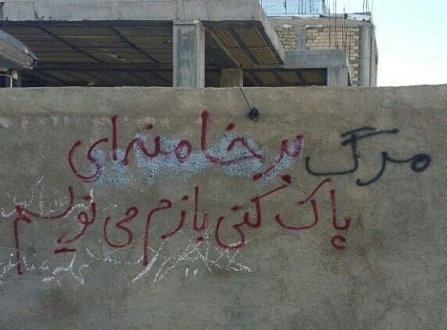 مرگ بر خامنه‌ای
پاک کنی بازم می نویسم